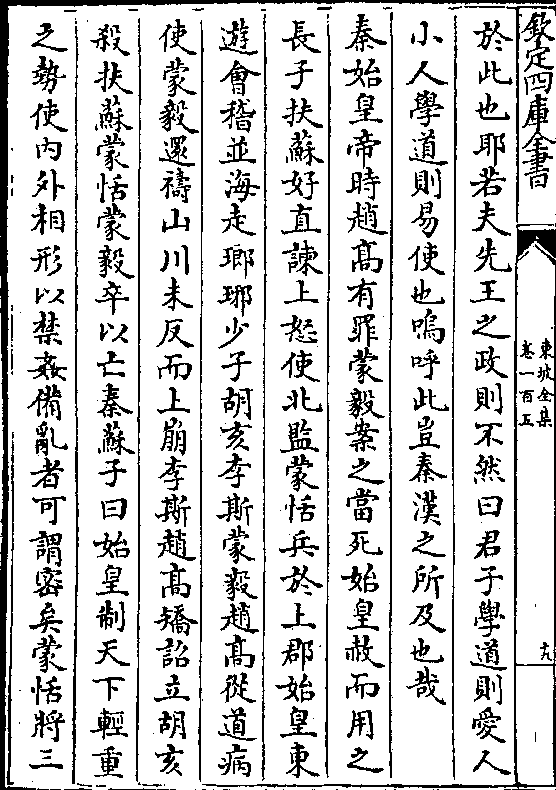 欽定四庫全書
東坡全集
卷一百五
九
於此也耶若夫先王之政則不然曰君子學道則愛人
小人學道則易使也嗚呼此豈秦漢之所及也哉
秦始皇帝時趙髙有罪蒙毅案之當死始皇赦而用之
長子扶蘇好直諫上怒使北監蒙恬兵於上郡始皇東
遊會稽並海走瑯琊少子胡亥李斯蒙毅趙髙從道病
使蒙毅還禱山川未反而上崩李斯趙髙矯詔立胡亥
殺扶蘇蒙恬蒙毅卒以亡秦蘇子曰始皇制天下輕重
之勢使内外相形以禁姦備亂者可謂密矣蒙恬將三